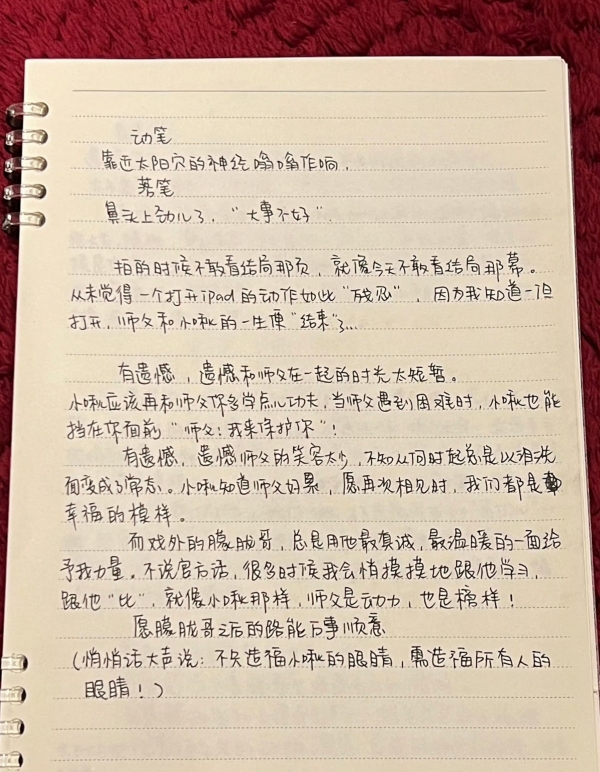 动笔
靠近太阳穴的神经嗡嗡作响，
落笔
鼻头上劲儿了，“大事不好”.
拍的时候不敢看结局那页，就像今天不敢看结局那幕。
从未觉得一个打开ipad的动作如此“残忍”，因为我知道一旦
打开，师父和小啾的一生便“结束”了...
有遗憾，遗憾和师父在一起的时光太短暂。
小啾应该再和师父你多学点儿功夫，当师父遇到困难时，小啾也能
挡在你面前“师父！我来保护你”！
有遗憾，遗憾师父的笑容太少，不知从何时起总是以泪洗
面变成了常态。小啾知道师父如果，愿再次相见时，我们都是
幸福的模样。
而戏外的朦胧哥，总是用他最真诚，最温暖的一面给
予我力量。不说官方话，很多时候我会悄摸摸地跟他学习，
跟他“比”，就像小啾那样，师父是动力，也是榜样！
愿朦胧哥之后的路能万事顺意
（悄悄话大声说：不只造福小啾的眼睛，需造福所有人的
眼睛！）